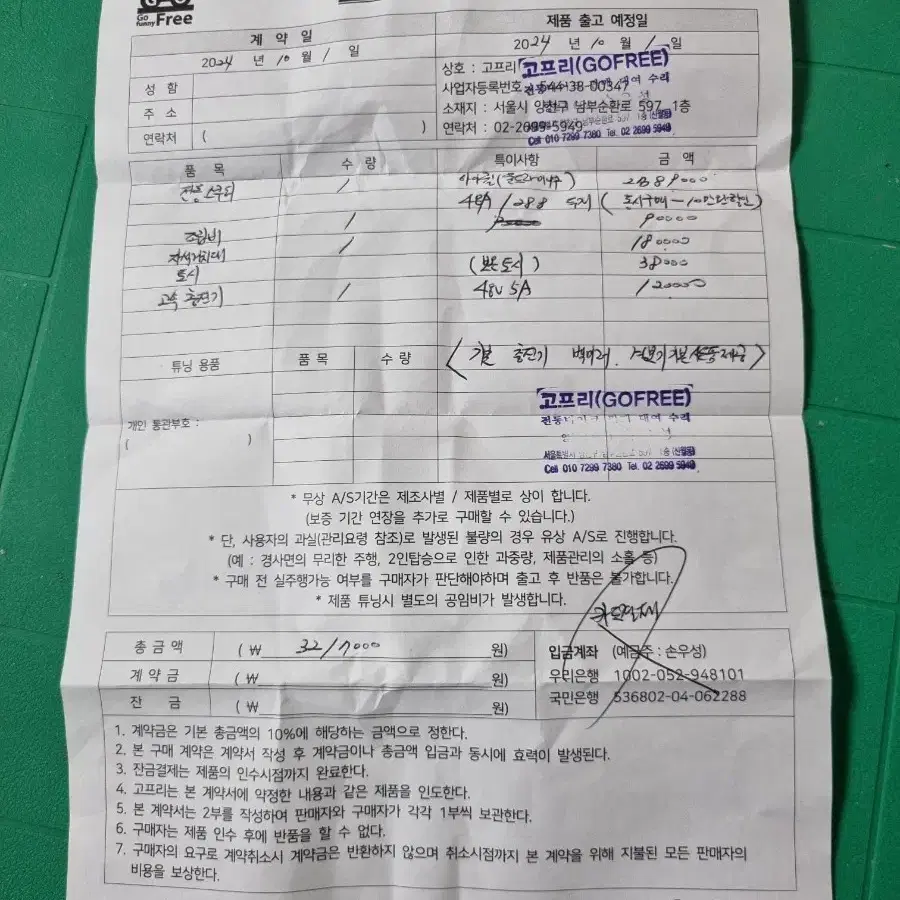 Go funny Free
계 약 일
제품 출고 예정일
2024 년 10 월 1 일
2024 년 10 월 1 일
성 함
주 소
연락처 ( )
상호 : 고프리
고프리(GOFREE)
사업자등록번호 : 544-38-00347
대여 수리
소재지 : 서울시 양천구 남부순환로 597, 1층
연락처 : 02-2699-5949
Cell 010 7299 7380 Tel. 02 2699 5949
품 목 수 량 특이사항 금 액
전동스쿠터 1
1 90000
조립비 1 180000
토시 (보온토시) 38000
고속 충전기 1 48V 5A 120000
튜닝 용품 품 목 수 량
충전기
개인 통관부호 :
( )
고프리(GOFREE)
대여 수리
Cell 010 7299 7380 Tel. 02 2699 5949
* 무상 A/S기간은 제조사별 / 제품별로 상이 합니다.
(보증 기간 연장을 추가로 구매할 수 있습니다.)
* 단, 사용자의 과실(관리요령 참조)로 발생된 불량의 경우 유상 A/S로 진행합니다.
(예 : 경사면의 무리한 주행, 2인탑승으로 인한 과중량, 제품관리의 소홀 등)
* 구매 전 실주행가능 여부를 구매자가 판단해야하며 출고 후 반품은 불가합니다.
* 제품 튜닝시 별도의 공임비가 발생합니다.
총 금 액 ( ₩ 3217000 원)
계 약 금 ( ₩ 원)
잔 금 ( ₩ 원)
입금계좌 (예금주 : 손우성)
우리은행 1002-052-948101
국민은행 536802-04-062288
1. 계약금은 기본 총금액의 10%에 해당하는 금액으로 정한다.
2. 본 구매 계약은 계약서 작성 후 계약금이나 총금액 입금과 동시에 효력이 발생된다.
3. 잔금결제는 제품의 인수시점까지 완료한다.
4. 고프리는 본 계약서에 약정한 내용과 같은 제품을 인도한다.
5. 본 계약서는 2부를 작성하여 판매자와 구매자가 각각 1부씩 보관한다.
6. 구매자는 제품 인수 후에 반품을 할 수 없다.
7. 구매자의 요구로 계약취소시 계약금은 반환하지 않으며 취소시점까지 본 계약을 위해 지불된 모든 판매자의
비용을 보상한다.